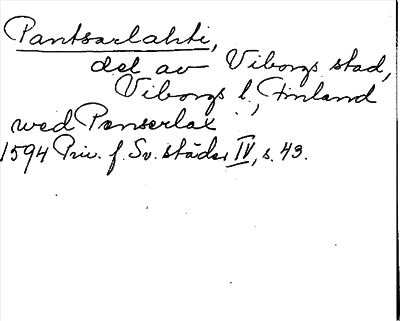 Pantsarlahti,
del av Viborgs stad,
Viborgs l., Finland
wed Panserlax
1594 Priv. f. Sv. städer IV, s. 43.